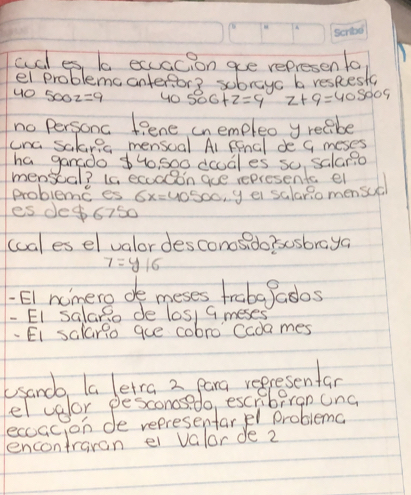 Scribe
cual es la ecuación que represento
el problema anterior? subraya la respuesta
40 500z=9 40 500+z=9 z+9=40500g
na persona tiene un empleo y recibe
una salaria mensual Al final de 9 meses
ha ganado $40,500 dcuál es su salario
mensual? la ecuación que representa el
problema es 6x=40500, y el salario mensual
es de $6750
cual es el valor desconosido? susbraya
7=y/6
- El número de meses trabajados
- El salario de los 9 meses
- El salario que cobro cada mes
usando la letra 2 para representar
el valor desconosido, escribiran una
ecuación de representar el problema
encontraran el valor de 2